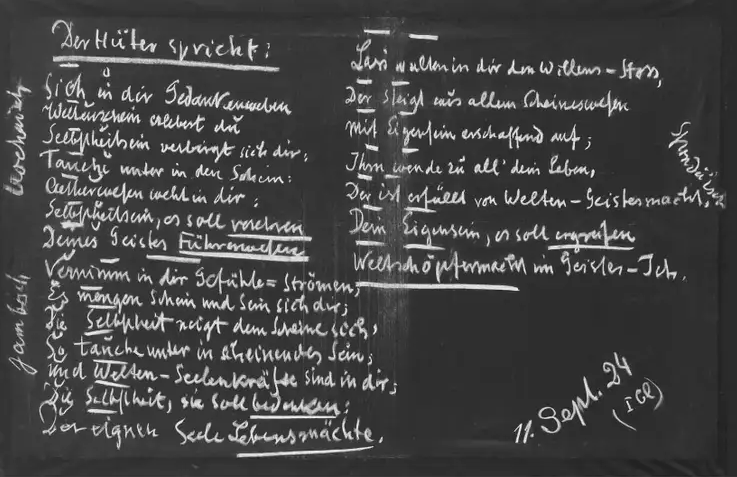 Der Hüter spricht:
trochäisch
Sieh in dir Gedankenweben
Weltenschein erlebest du
Selbstheitsein verbirgt sich dir;
Tauche unter in den Schein:
Aetherwesen weht in dir;
Selbstheitsein, es soll verehren
Deines Geistes Führerwesen
jambisch
Vernimm in dir Gefühle-Strömen;
Es mengen Schein und Sein sich dir;
Die Selbstheit neigt dem Scheine sich;
So tauche unter in scheinendes Sein;
Und Welten-Seelenkräfte sind in dir;
Die Selbstheit, sie soll bedenken:
Der eignen Seele Lebensmächte.
Lass walten in dir den Willens-Stoss,
Der steigt aus allem Scheineswesen
Mit Eigensein erschaffend auf;
Ihm wende zu all' dein Leben,
Der ist erfüllt von Welten-Geistesmacht;
Dein Eigensein, es soll ergreifen
Weltschöpfermacht im Geistes-Ich.
Spondäisch
11. Sept. 24